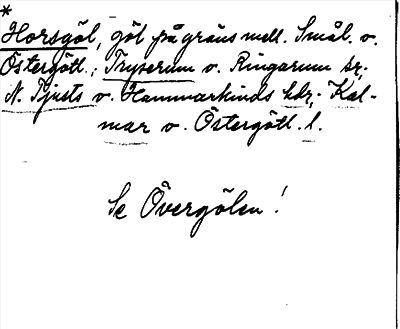 *
Horsgöl, göl på gräns mell. Smål. o.
Östergötl.; Tryserum o. Ringarum sr;
N. Tjusts o. Hammarkinds hdr; Kal-
mar o. Östergötl. l.
Se Övergölen!